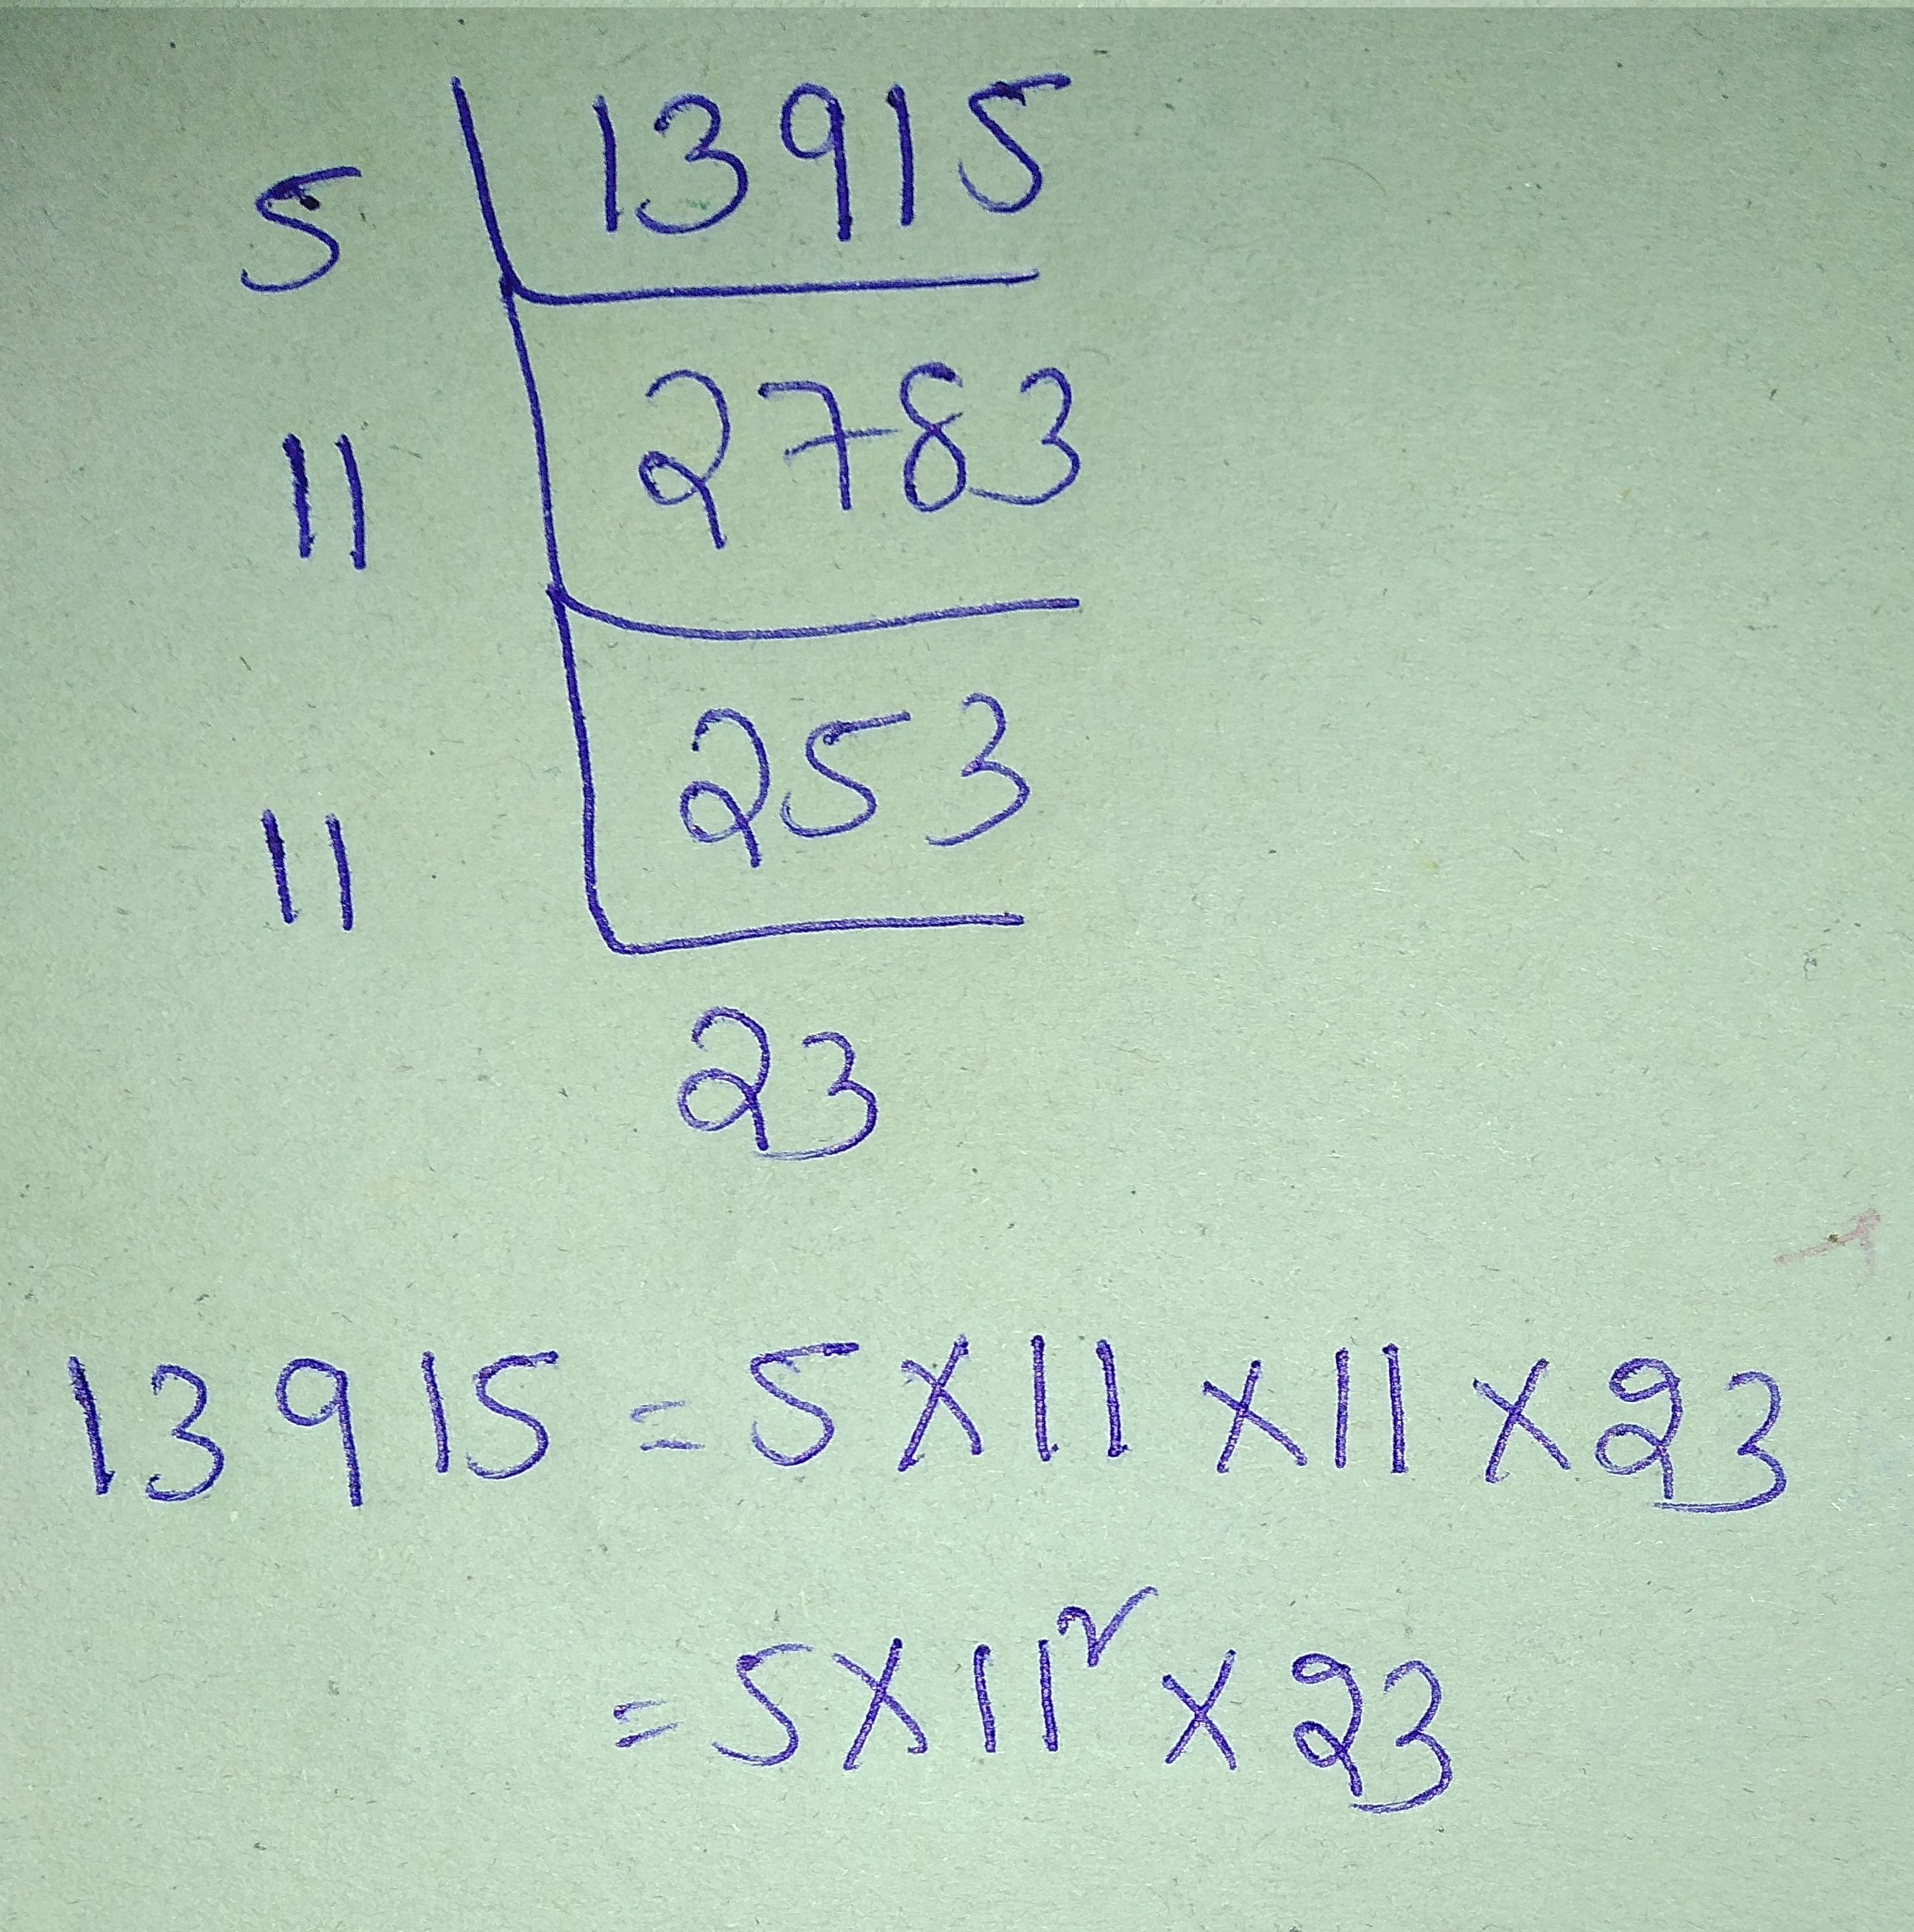 5 | 13915
11 | 2783
11 | 253
23
13915 = 5 × 11 × 11 × 23
= 5 × 11² × 23